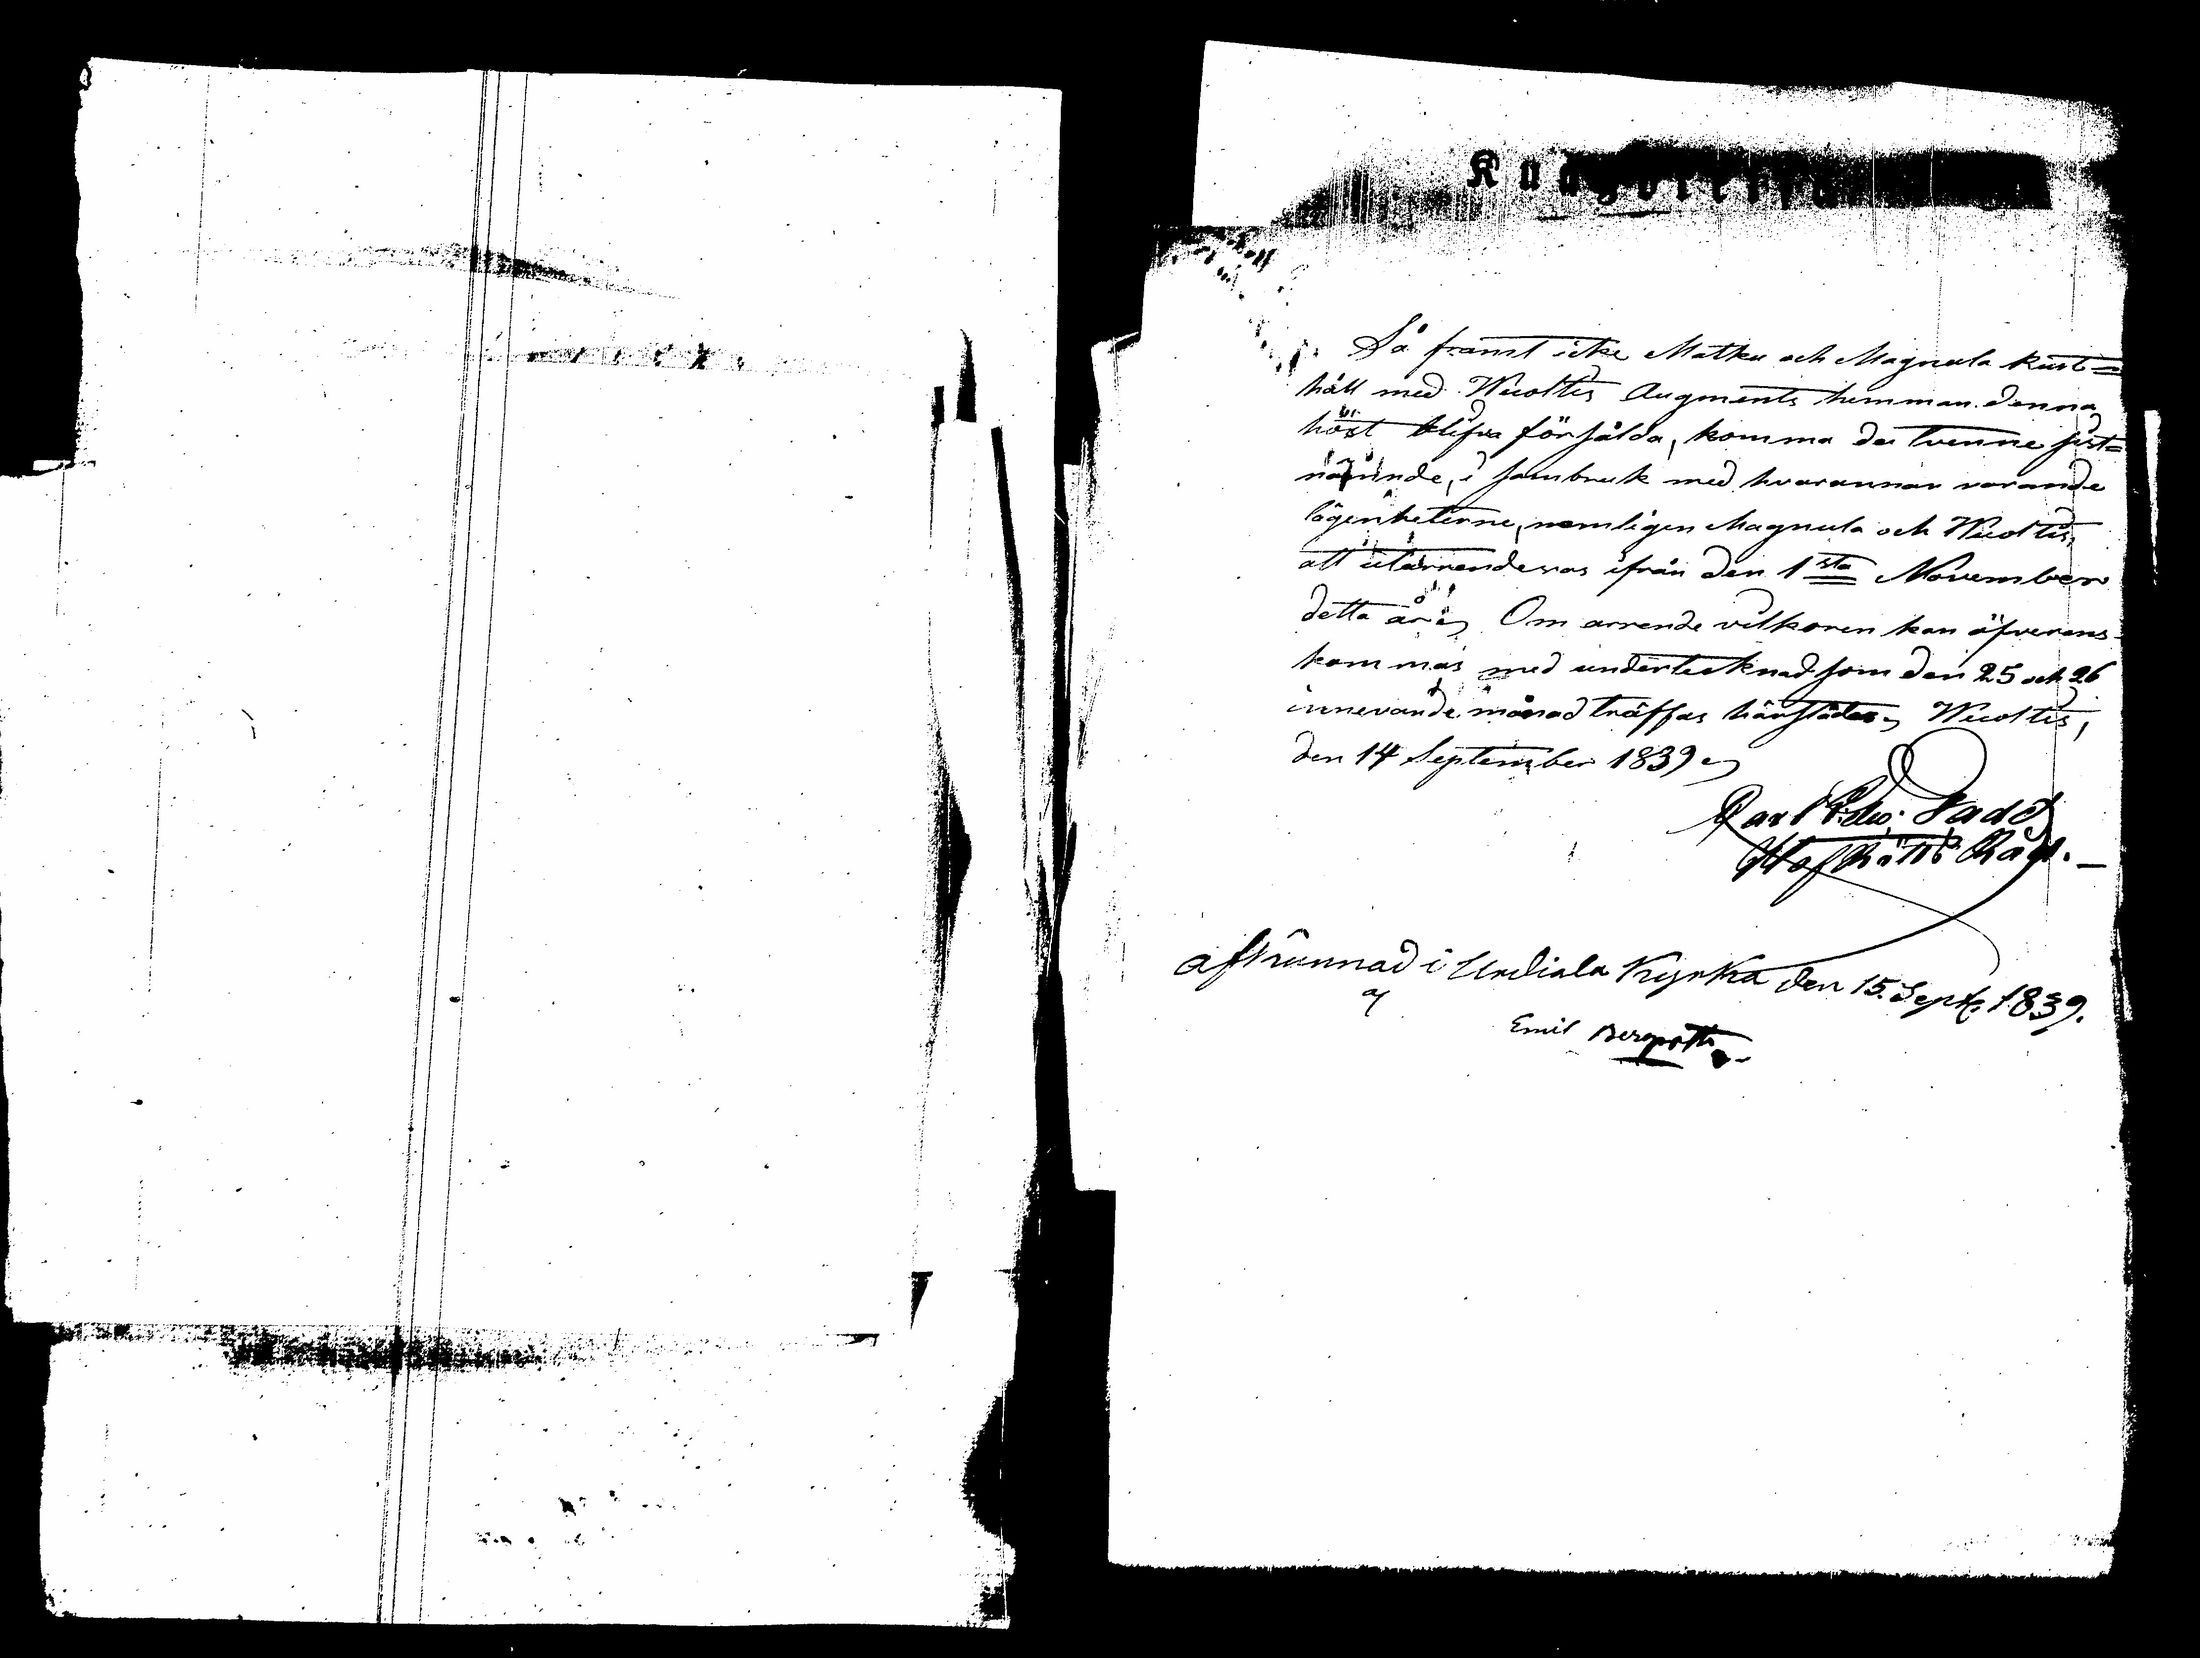 Så framt icke Matku och Magnula Rust=
håll med Wuoltis Augments hemman denna
höst blifva försålda, komma de tvenne sist=
nämnde, i sambruk med hvarannan varande
lägenheterne, nemligen Magnula och Wuoltis,
att utarrenderas ifrån den 1sta November
detta år. Om arrende vilkoren kan öfverens-
kommas med undertecknad som den 25 och 26
innevarande månad träffas härstädes. Wuoltis,
den 14 September 1839.
Carl Edv. Gadd
Hof Rätts Råd.
afkunnad i Urdiala Kyrka den 15. Sept. 1839.
af
Emil Bergroth